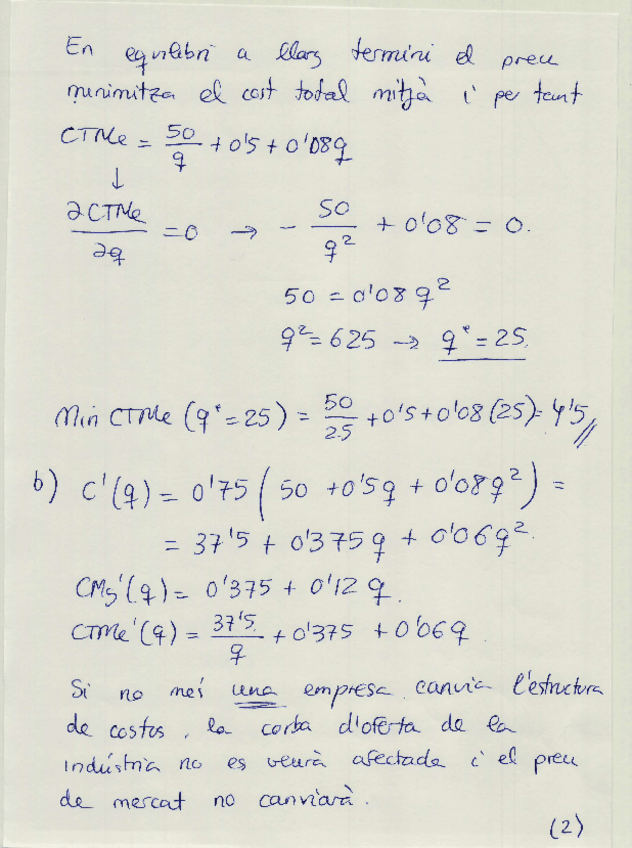 En equilibri a llarg termini el preu
minimitza el cost total mitjà i per tant
CTMe = 50/q + 0'5 + 0'08q
↓
∂CTMe/∂q = 0 → - 50/q² + 0'08 = 0.
50 = 0'08 q²
q² = 625 → q* = 25.
Min CTMe (q* = 25) = 50/25 + 0'5 + 0'08 (25) = 4'5 //
b) C'(q) = 0'75 ( 50 + 0'5q + 0'08q² ) =
= 37'5 + 0'375q + 0'06q².
CMg'(q) = 0'375 + 0'12 q.
CTMe'(q) = 37'5/q + 0'375 + 0'06q.
Si no més una empresa canvia l'estructura
de costos, la corba d'oferta de la
indústria no es veurà afectada i el preu
de mercat no canviarà.
(2)